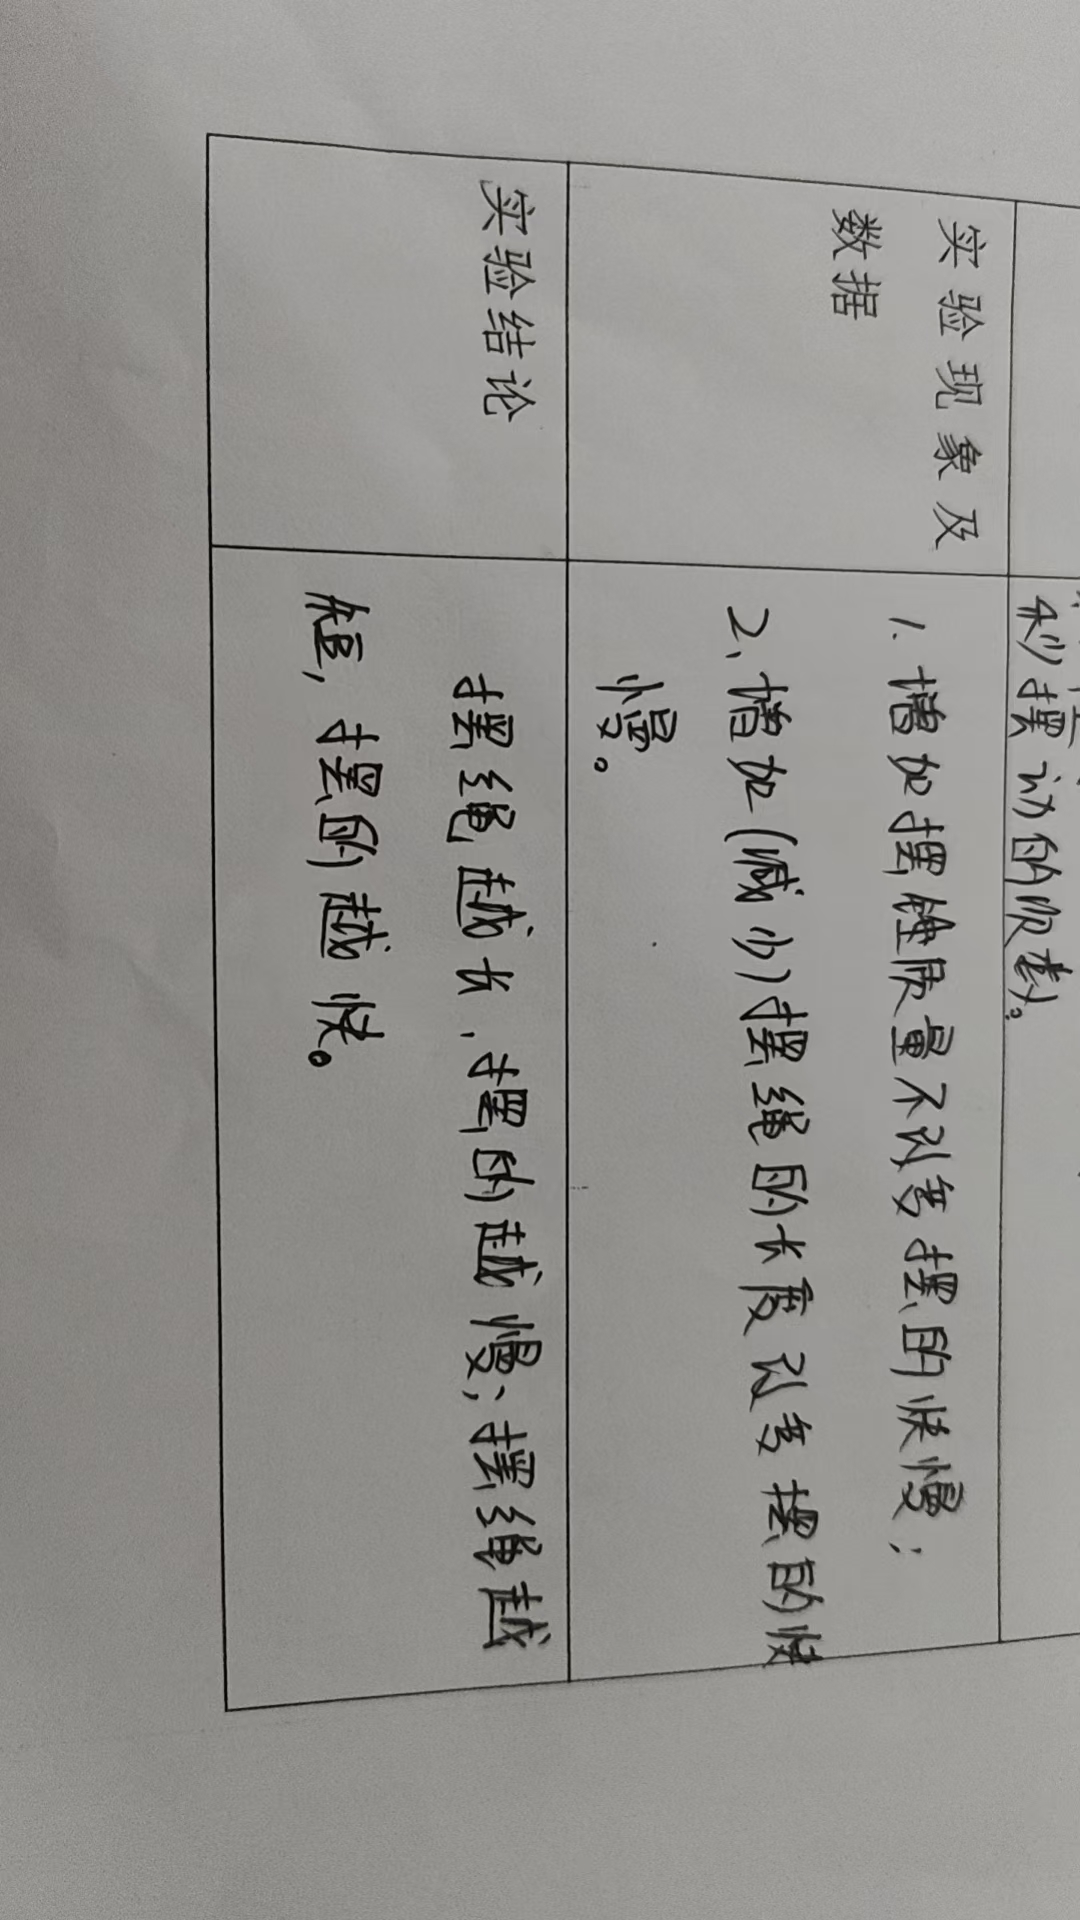 秒摆动的次数。
实验现象及
数据
1. 增加摆锤质量不改变摆的快慢;
2、增加(减少)摆绳的长度改变摆的快
慢。
实验结论
摆绳越长,摆的越慢;摆绳越
短,摆的越快。